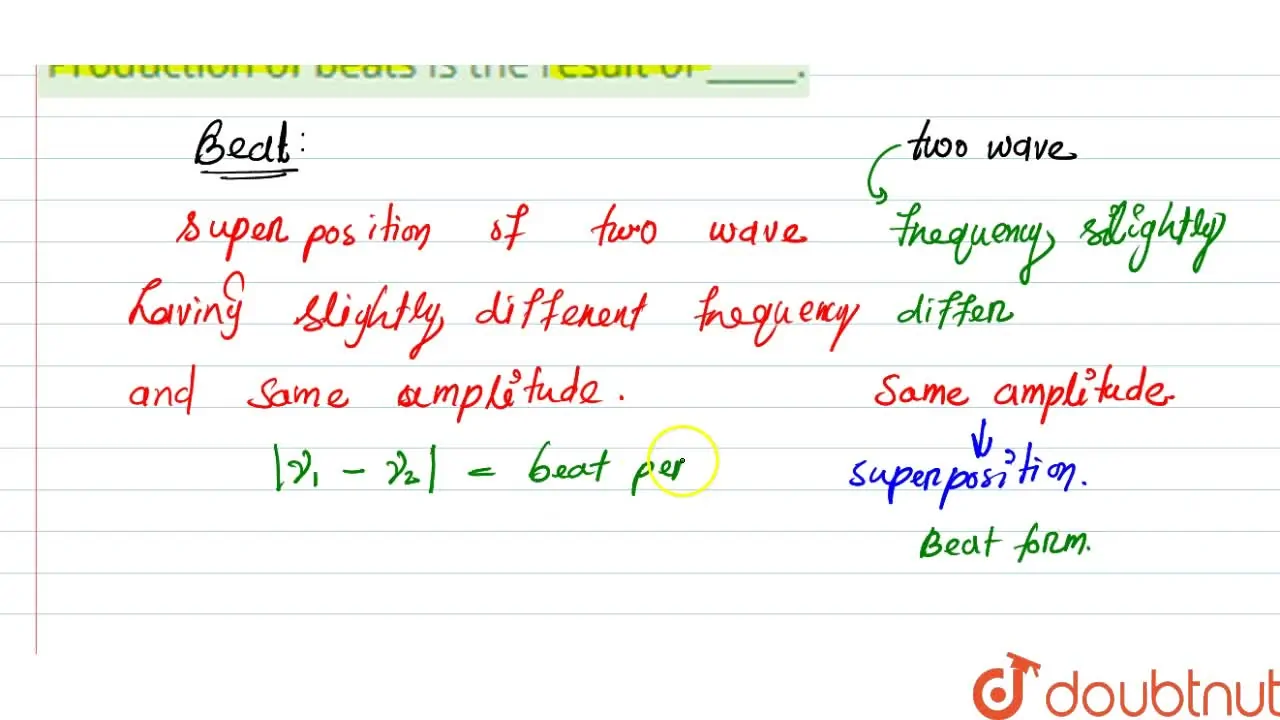 Production of beats is the result of _____.
Beat:
two wave
superposition of two wave
frequency slightly
having slightly different frequency
differ
and same amplitude.
same amplitude
|ν₁ - ν₂| = beat per
superposition.
Beat form.
doubtnut